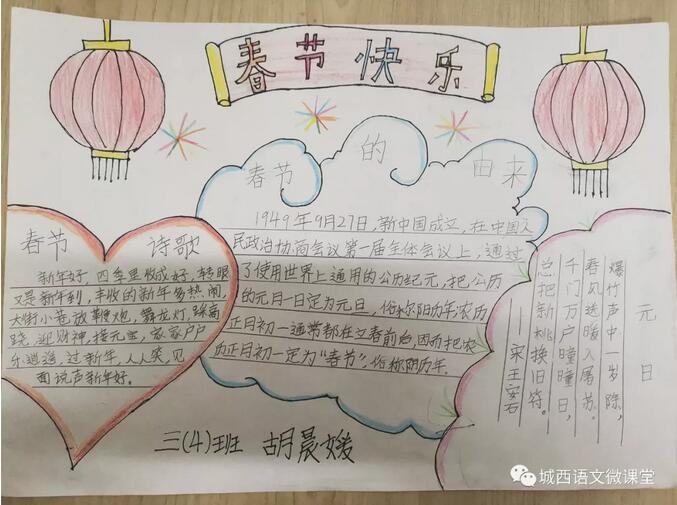 春节快乐
春节的由来
1949年9月27日,新中国成立,在中国人
民政治协商会议第一届全体会议上,通过
了使用世界上通用的公历纪元,把公历
的元月一日定为元旦,俗称阳历年农历
正月初一通常都在立春前后,因而把农
历正月初一定为“春节”,俗称阴历年。
春节 诗歌
新年好,四季里收成好,转眼
又是新年到,丰收的新年多热闹,
大街小巷放鞭炮,舞龙灯,踩高
跷,迎财神,接元宝,家家户户
乐逍遥,过新年,人人笑,见
面说声新年好。
元日
爆竹声中一岁除,
春风送暖入屠苏。
千门万户曈曈日,
总把新桃换旧符。
——宋王安石
三(4)班 胡晨媛
城西语文微课堂